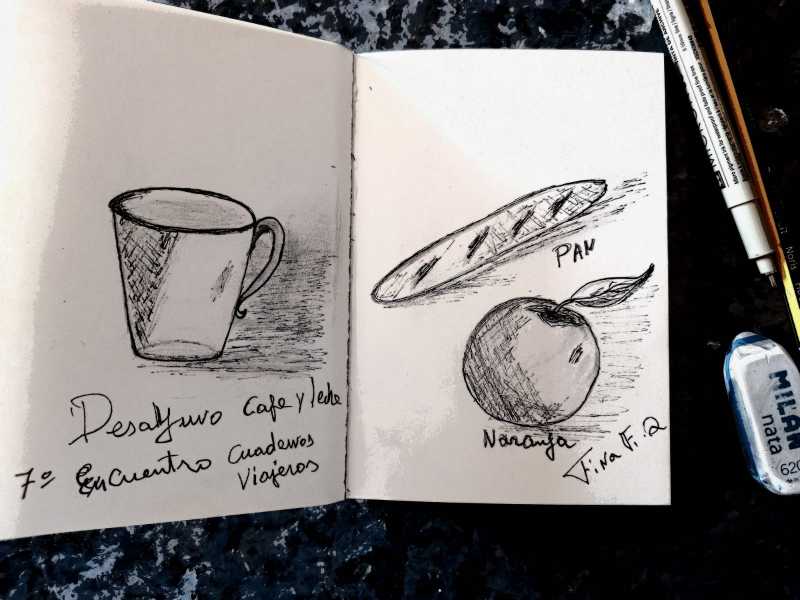 Desayuno cafe y leche
7º Encuentro Cuadernos
Viajeros
PAN
Naranja
MILAN
nata
620